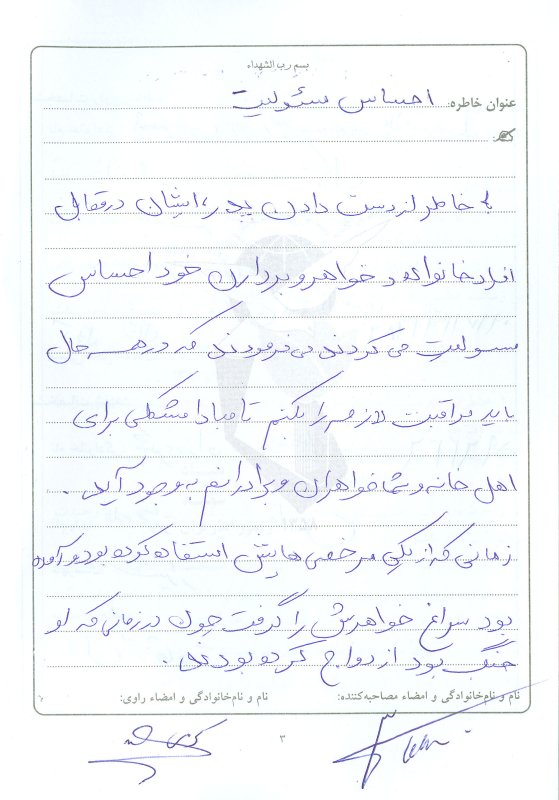 بسم رب الشهداء
عنوان خاطره: احساس مسئولیت
به خاطر از دست دادن پدر، ایشان در مقابل
افراد خانواده و خواهر و برداران خود احساس
مسولیت می کردند می فرمودند که در همه حال
باید مراقبت لازمه را بکنم تا مبادا مشکلی برای
اهل خانه و شما خواهران و برادرانم به وجود آید.
زمانی که از یکی مرخصی هایش استفاده کرده بود و آمده
بود سراغ خواهرش را گرفت چون در زمانی که او
جنگ بود ازدواج کرده بودند.
نام و نام‌خانوادگی و امضاء مصاحبه‌کننده: نام و نام‌خانوادگی و امضاء راوی:
۳